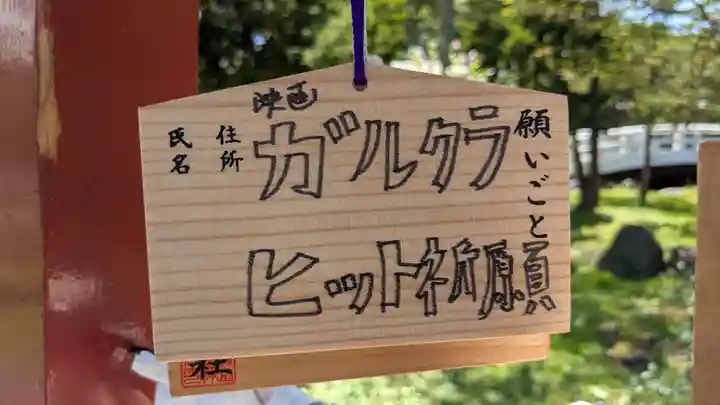 願いごと
映画
ガルクラ
ヒット祈願
住所
氏名
社